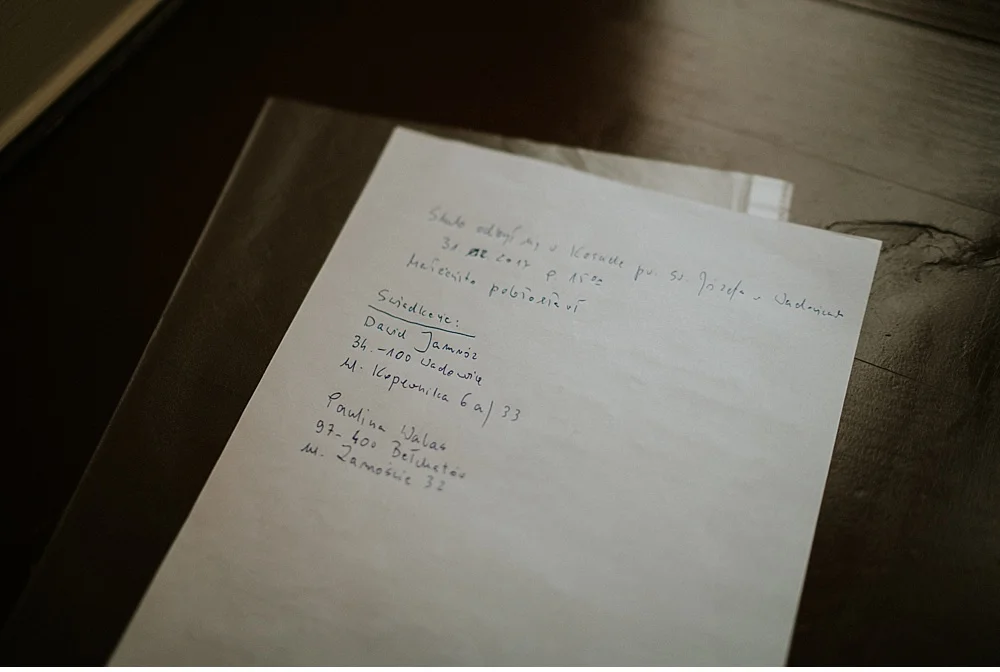 Ślub odbył się w Kościele pw. św. Józefa w Wadowicach
31 2017 g. 15:00
Małżeństwo pobłogosławił
Świadkowie:
Dawid Jamróz
34-100 Wadowice
ul. Kopernika 6a/33
Paulina Walas
97-400 Bełchatów
ul. Zamoście 32